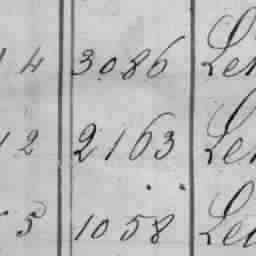 4 3086 Le
2 2163 Le
5 1058 Le